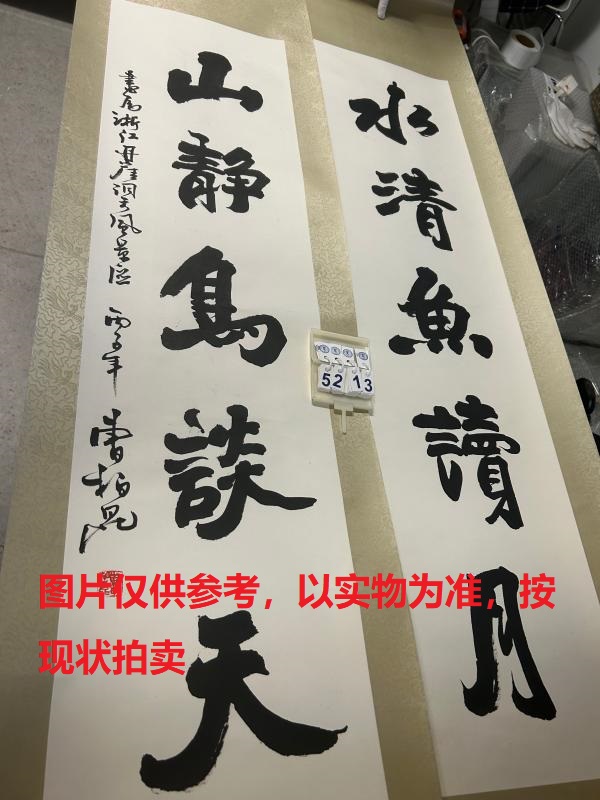 水清魚讀月
山静鳥談天
書爲浙江丹崖洞天風景區
丙子年
曹柏昆
5213
图片仅供参考，以实物为准，按
现状拍卖